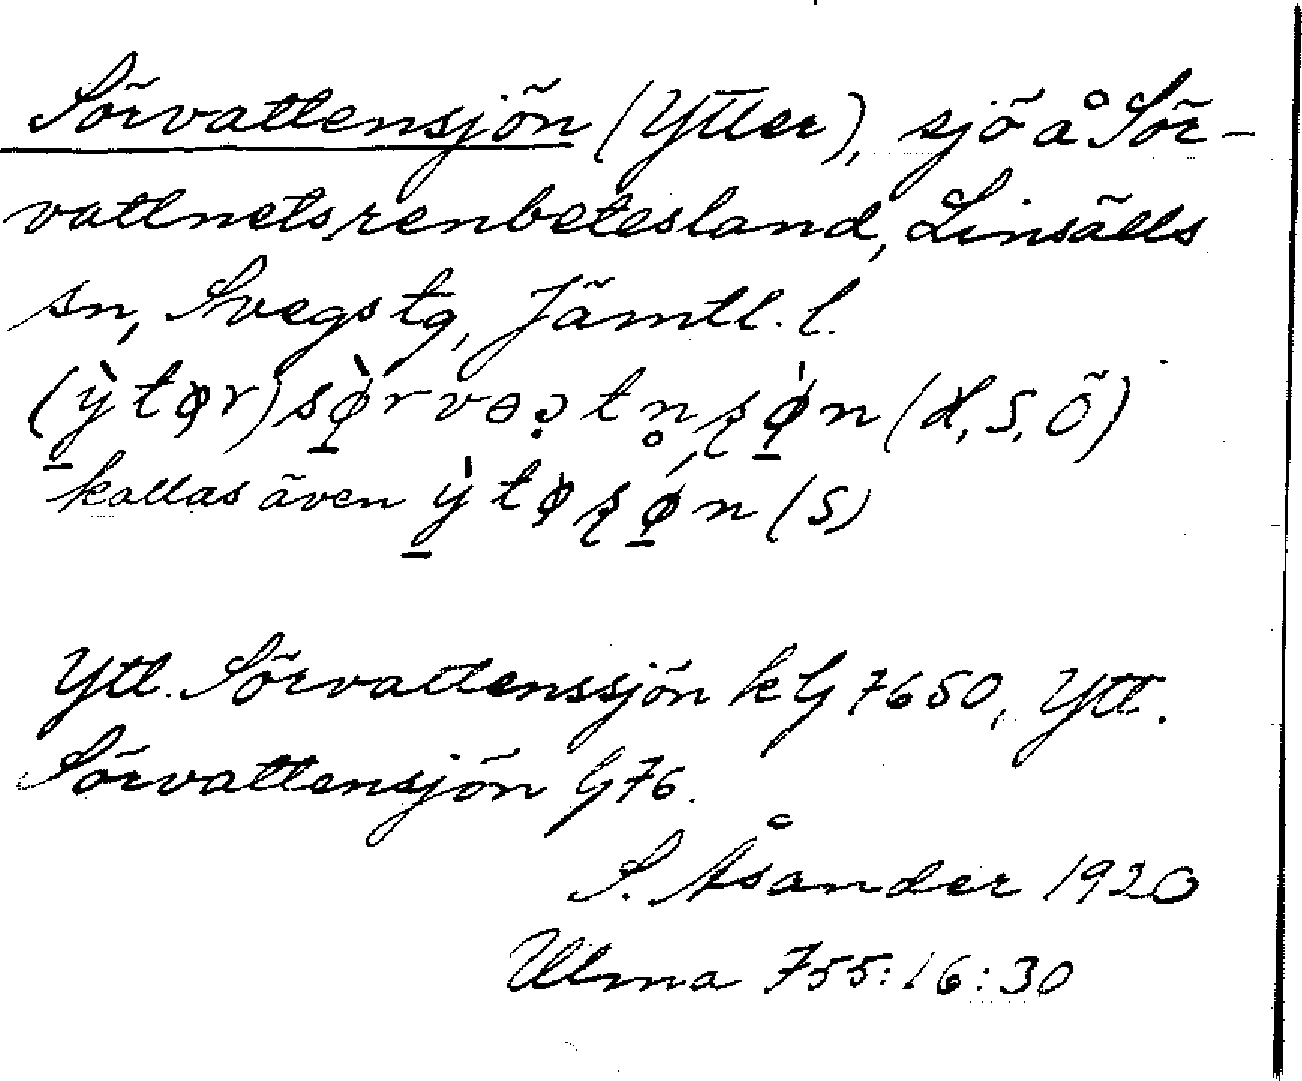 Sörvattensjön (Ytter), sjö å Sör-
vattnets renbetesland, Linsälls
sn, Svegs tg, Jämtl. l.
kallas även
Ytt. Sörvattenssjön kG 7650, Ytt.
Sörvattensjön G76.
S. Åsander 1920
Ulma 755:16:30